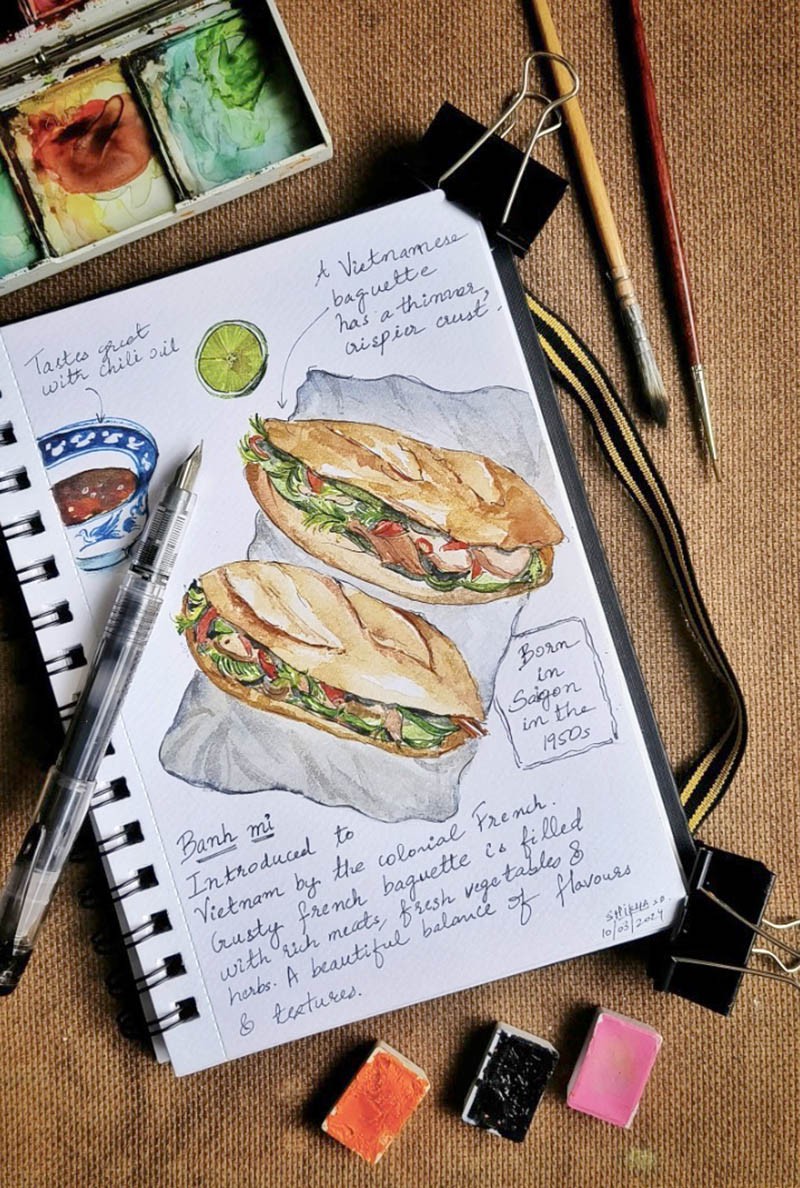 A Vietnamese
baguette
has a thinner,
crispier crust.
Tastes great
with chili oil
Born
in
Saigon
in the
1950s
Banh mi
Introduced to
Vietnam by the colonial French.
Crusty french baguette is filled
with rich meats, fresh vegetables &
herbs. A beautiful balance of flavours
& textures.
SHIKHA SD.
10/03/2024